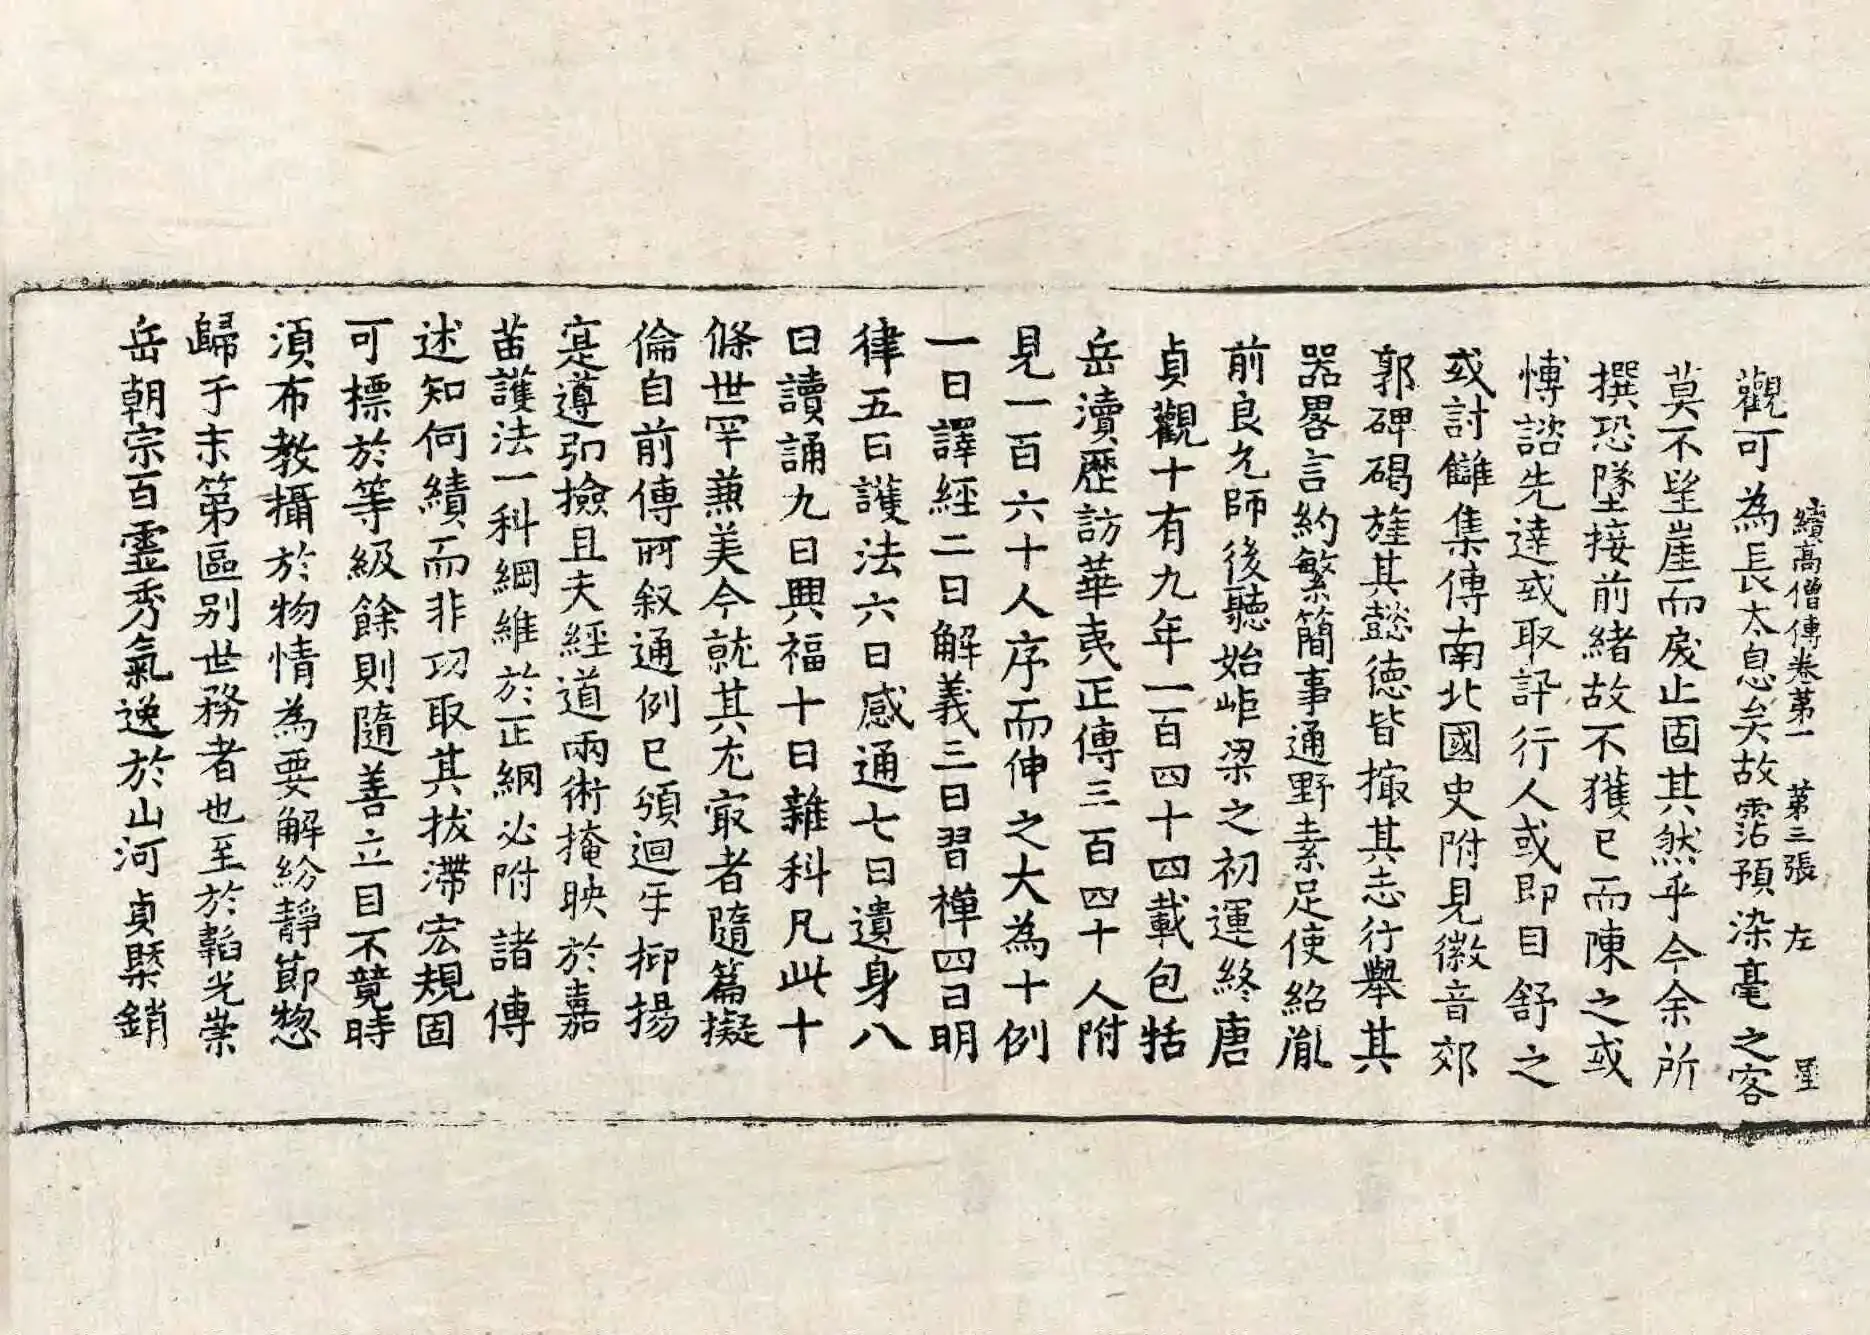 續高僧傳卷第一　第三張　左　星
觀可為長太息矣故霑預染毫之客
莫不望崖而戾止固其然乎今余所
撰恐墜接前緒故不獲已而陳之或
博諮先達或取訊行人或即目舒之
或討讎集傳南北國史附見徽音郊
郭碑碣旌其懿德皆撮其志行舉其
器畧言約繁簡事通野素足使紹胤
前良允師後聽始岠梁之初運終唐
貞觀十有九年一百四十四載包括
岳瀆歷訪華夷正傳三百四十人附
見一百六十人序而伸之大為十例
一曰譯經二曰解義三曰習禪四曰明
律五曰護法六曰感通七曰遺身八
曰讀誦九曰興福十曰雜科凡此十
條世罕兼美今就其尤最者隨篇擬
倫自前傳所叙通例已頒迴乎抑揚
寔遵弘撿且夫經道兩術掩映於嘉
苗護法一科綱維於正網必附諸傳
述知何績而非功取其拔滯宏規固
可標於等級餘則隨善立目不競時
須布教攝於物情為要解紛靜節惣
歸于末第區别世務者也至於韜光崇
岳朝宗百靈秀氣逸於山河貞槩銷